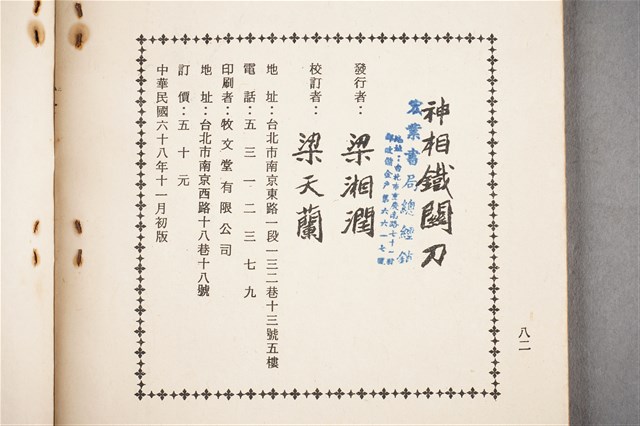 八二
神相鐵關刀
宏業書局總經銷
發行者：梁湘潤
校訂者：梁天蘭
地址：台北市南京東路一段一三二巷十三號五樓
電話：五三一二三七九
印刷者：牧文堂有限公司
地址：台北市南京西路十八巷十八號
訂價：五十元
中華民國六十八年十一月初版